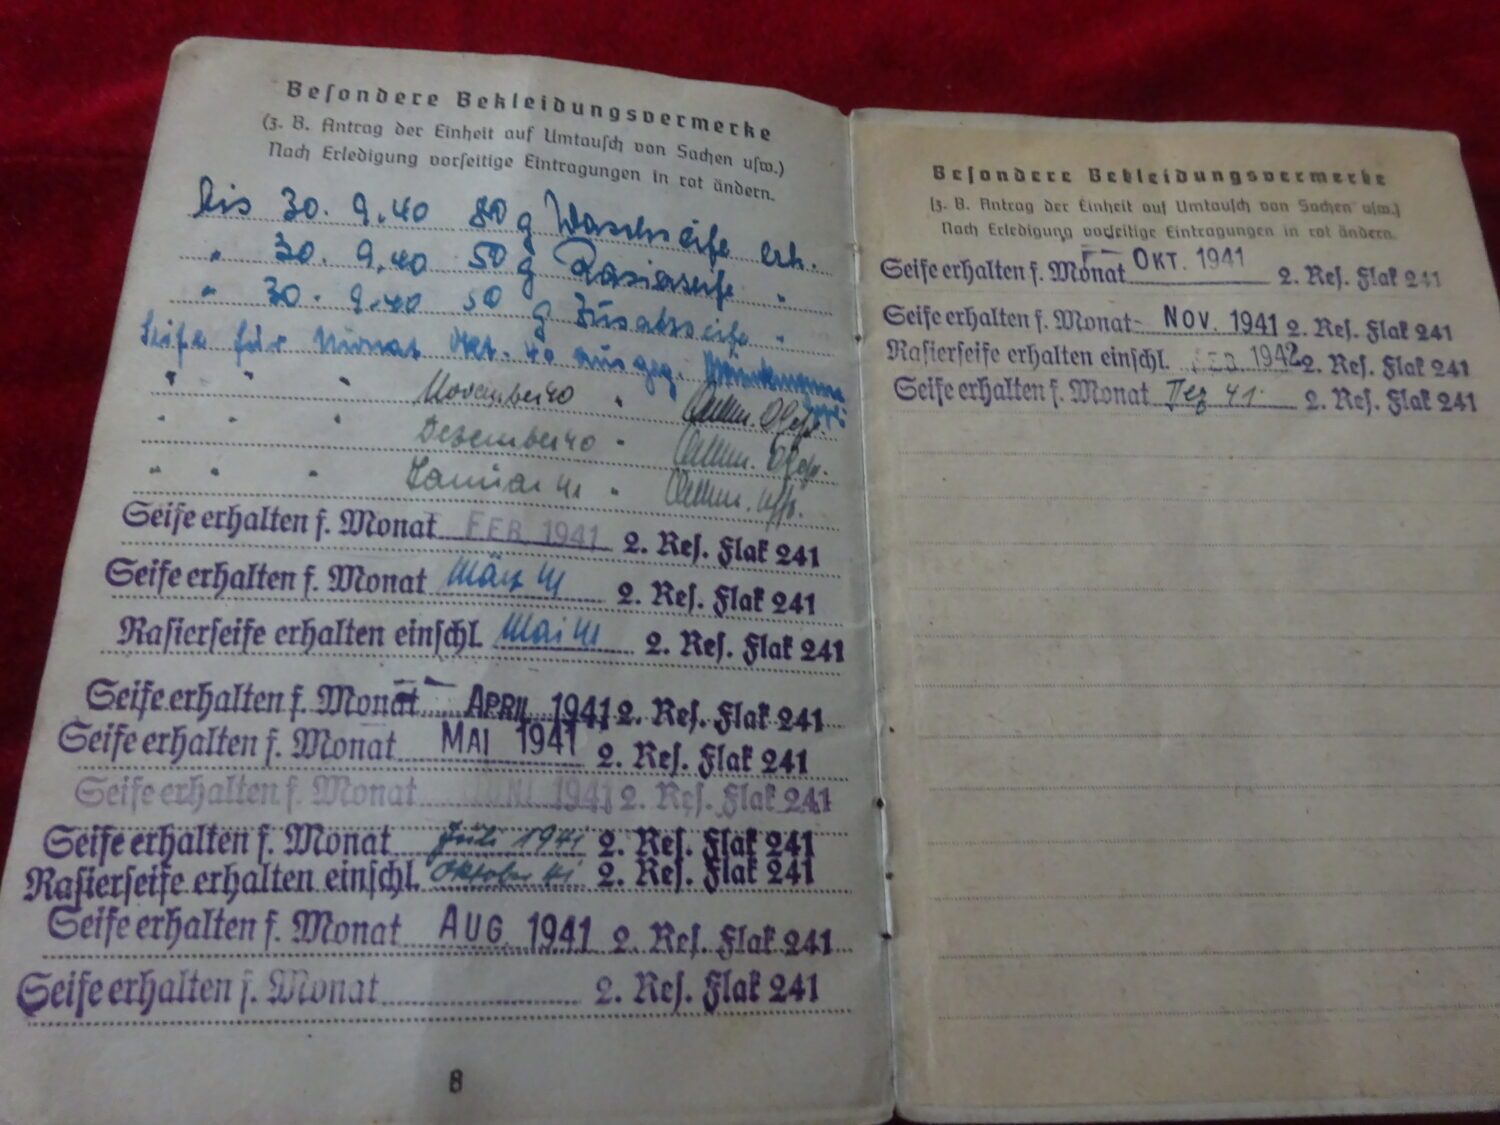 Besondere Bekleidungsvermerke
(z. B. Antrag der Einheit auf Umtausch von Sachen usw.)
Nach Erledigung vorseitige Eintragungen in rot ändern.
bis 30. 9.40 80 g Waschseife erh.
" 30. 9.40 50 g Rasierseife "
" 30. 9.40 50 g Zusatzseife "
Seife für Monat Okt. 40 ausgeg.
" " " November 40 "
" " " Dezember 40 "
" " " Januar 41 "
Seife erhalten f. Monat FEB. 1941 2. Res. Flak 241
Seife erhalten f. Monat März 41 2. Res. Flak 241
Rasierseife erhalten einschl. Mai 41 2. Res. Flak 241
Seife erhalten f. Monat APRIL 1941 2. Res. Flak 241
Seife erhalten f. Monat MAI 1941 2. Res. Flak 241
Seife erhalten f. Monat JUNI 1941 2. Res. Flak 241
Seife erhalten f. Monat Juli 1941 2. Res. Flak 241
Rasierseife erhalten einschl. Oktober 41 2. Res. Flak 241
Seife erhalten f. Monat AUG. 1941 2. Res. Flak 241
Seife erhalten f. Monat 2. Res. Flak 241
8
Besondere Bekleidungsvermerke
(z. B. Antrag der Einheit auf Umtausch von Sachen usw.)
Nach Erledigung vorseitige Eintragungen in rot ändern.
Seife erhalten f. Monat OKT. 1941 2. Res. Flak 241
Seife erhalten f. Monat NOV. 1941 2. Res. Flak 241
Rasierseife erhalten einschl. FEB. 1942 2. Res. Flak 241
Seife erhalten f. Monat Dez 41. 2. Res. Flak 241